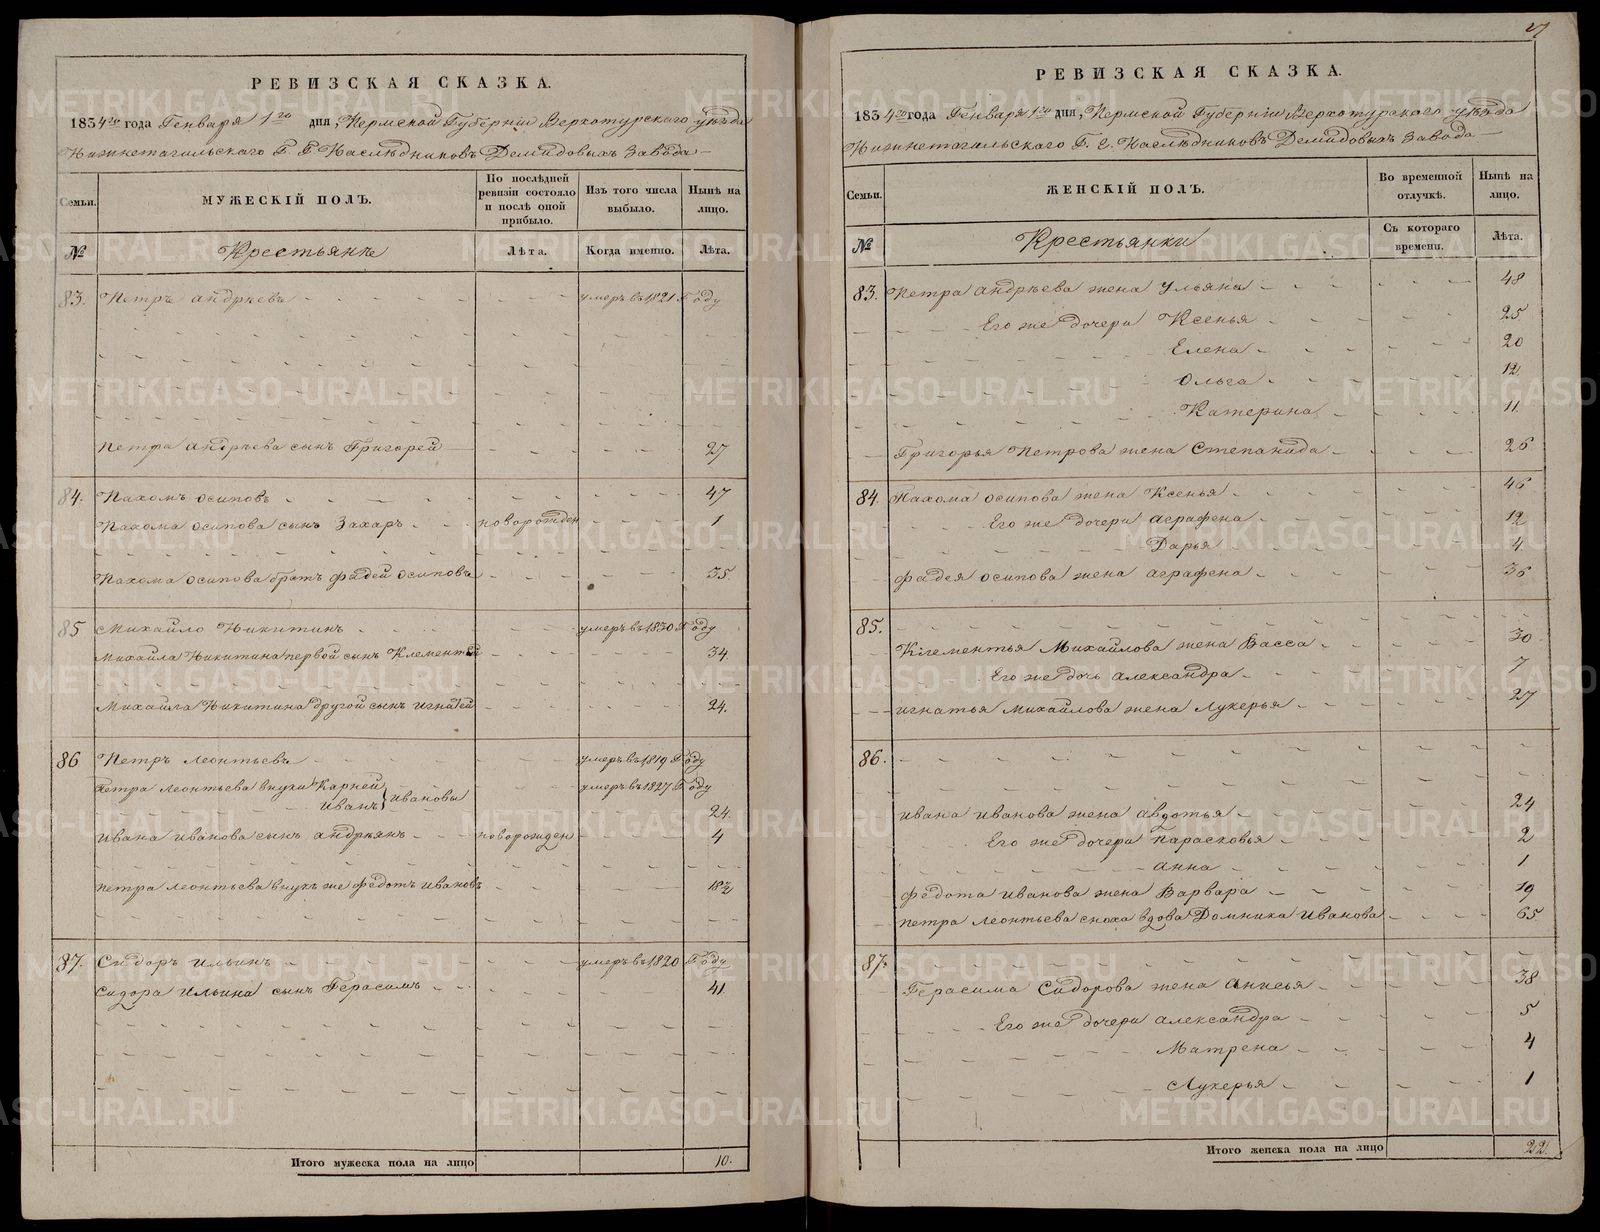 РЕВИЗСКАЯ СКАЗКА.
1834го года Генваря 1го дня, Пермской Губернiи Верхотурскаго уѣзда
Нижнетагильскаго Г. Г. Наслѣдниковъ Демидовыхъ Завода
Семьи. МУЖЕСКIЙ ПОЛЪ. По послѣдней ревизiи состояло и послѣ оной прибыло. Изъ того числа выбыло. Нынѣ на лицо.
№ Крестьяне Лѣта. Когда именно. Лѣта.
83. Петръ Андрѣевъ умеръ въ 1821 Году
Петра Андрѣева сынъ Григорей 27
84. Пахомъ Осиповъ 47
Пахома Осипова сынъ Захаръ новорожден 1
Пахома Осипова братъ Фадей Осиповъ 35
85 Михайло Никитинъ умеръ въ 1830 Году
Михайла Никитина первой сынъ Клементей 34
Михайла Никитина другой сынъ Игнатей 24.
86 Петръ Леонтьевъ умеръ въ 1819 Году
Петра Леонтьева внуки Карней умеръ въ 1827 Году
Иванъ } Ивановы 24.
Ивана Иванова сынъ Андрѣянъ новорожден 4
Петра Леонтьева внукъ же Федотъ Ивановъ 18½
87. Сидоръ Ильинъ умеръ въ 1820 Году
Сидора Ильина сынъ Герасимъ 41
Итого мужеска пола на лицо 10.
27
РЕВИЗСКАЯ СКАЗКА.
1834го года Генваря 1го дня, Пермской Губернiи Верхотурскаго уѣзда
Нижнетагильскаго Г. Г. Наслѣдниковъ Демидовыхъ Завода
Семьи. ЖЕНСКIЙ ПОЛЪ. Во временной отлучкѣ. Нынѣ на лицо.
№ Крестьянки Съ котораго времени. Лѣта.
83. Петра Андрѣева жена Ульяна 48
Его же дочери Ксенья 25
Елена 20
Ольга 12
Катерина 11
Григорья Петрова жена Степанида 26
84. Пахома Осипова жена Ксенья 46
Его же дочери Аграфена 12
Дарья 4
Фадея Осипова жена Аграфена 36
85.
Клементья Михайлова жена Васса 30
Его же дочь Александра 7
Игнатья Михайлова жена Лукерья 27
86.
Ивана Иванова жена Авдотья 24
Его же дочери Парасковья 2
Анна 1
Федота Иванова жена Варвара 19
Петра Леонтьева сноха вдова Домника Иванова 65
87.
Герасима Сидорова жена Анисья 38
Его же дочери Александра 5
Матрена 4
Лукерья 1
Итого женска пола на лицо 22.
METRIKI.GASO-URAL.RU